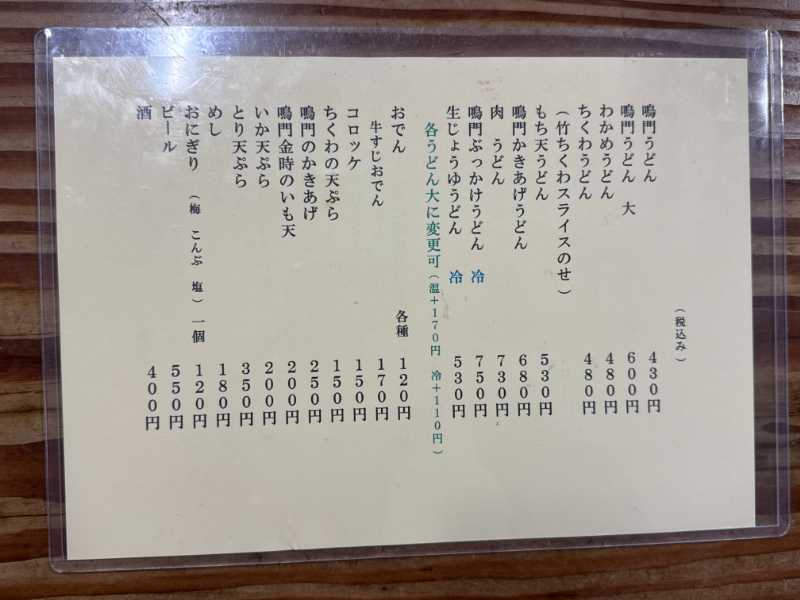 （税込み）
鳴門うどん 430円
鳴門うどん 大 600円
わかめうどん 480円
ちくわうどん 480円
（竹ちくわスライスのせ）
もち天うどん 530円
鳴門かきあげうどん 680円
肉 うどん 730円
鳴門ぶっかけうどん 冷 750円
生じょうゆうどん 冷 530円
各うどん大に変更可（温＋170円 冷＋110円）
おでん 各種 120円
牛すじおでん 170円
コロッケ 150円
ちくわの天ぷら 150円
鳴門のかきあげ 250円
鳴門金時のいも天 200円
いか天ぷら 200円
とり天ぷら 350円
めし 180円
おにぎり（梅 こんぶ 塩）一個 120円
ビール 550円
酒 400円